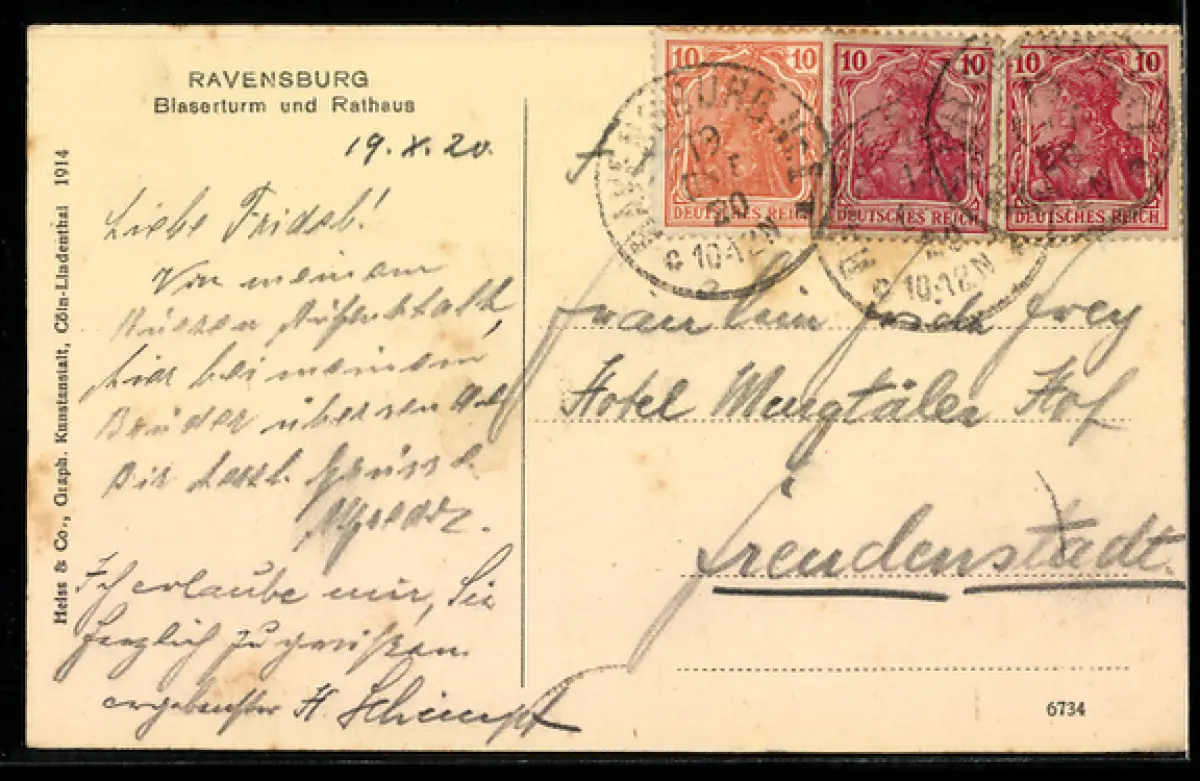 RAVENSBURG
Blaserturm und Rathaus
19.X.20.
Liebe Fridel!
Von meinem
kurzen Aufenthalt,
hier bei meinem
Bruder übersende
Dir herzl. Grüsse
Ich erlaube mir, Sie
herzlich zu grüßen
ergebenster H. Schimpf
Heiss & Co., Graph. Kunstanstalt, Cöln-Lindenthal 1914
10
DEUTSCHES REICH
10 10
DEUTSCHES REICH
10 10
DEUTSCHES REICH
RAVENSBURG
19
OKT
20
10-12N
10-12N
Fräulein Frey
Hotel Murgtäler Hof
Freudenstadt.
6734